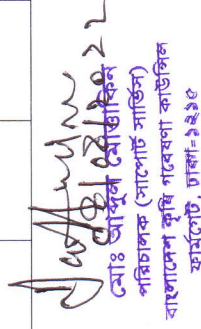 মোঃ আব্দুল মোত্তাকিন
পরিচালক (সাপোর্ট সার্ভিস)
বাংলাদেশ কৃষি গবেষণা কাউন্সিল
ফার্মগেট, ঢাকা-১২১৫